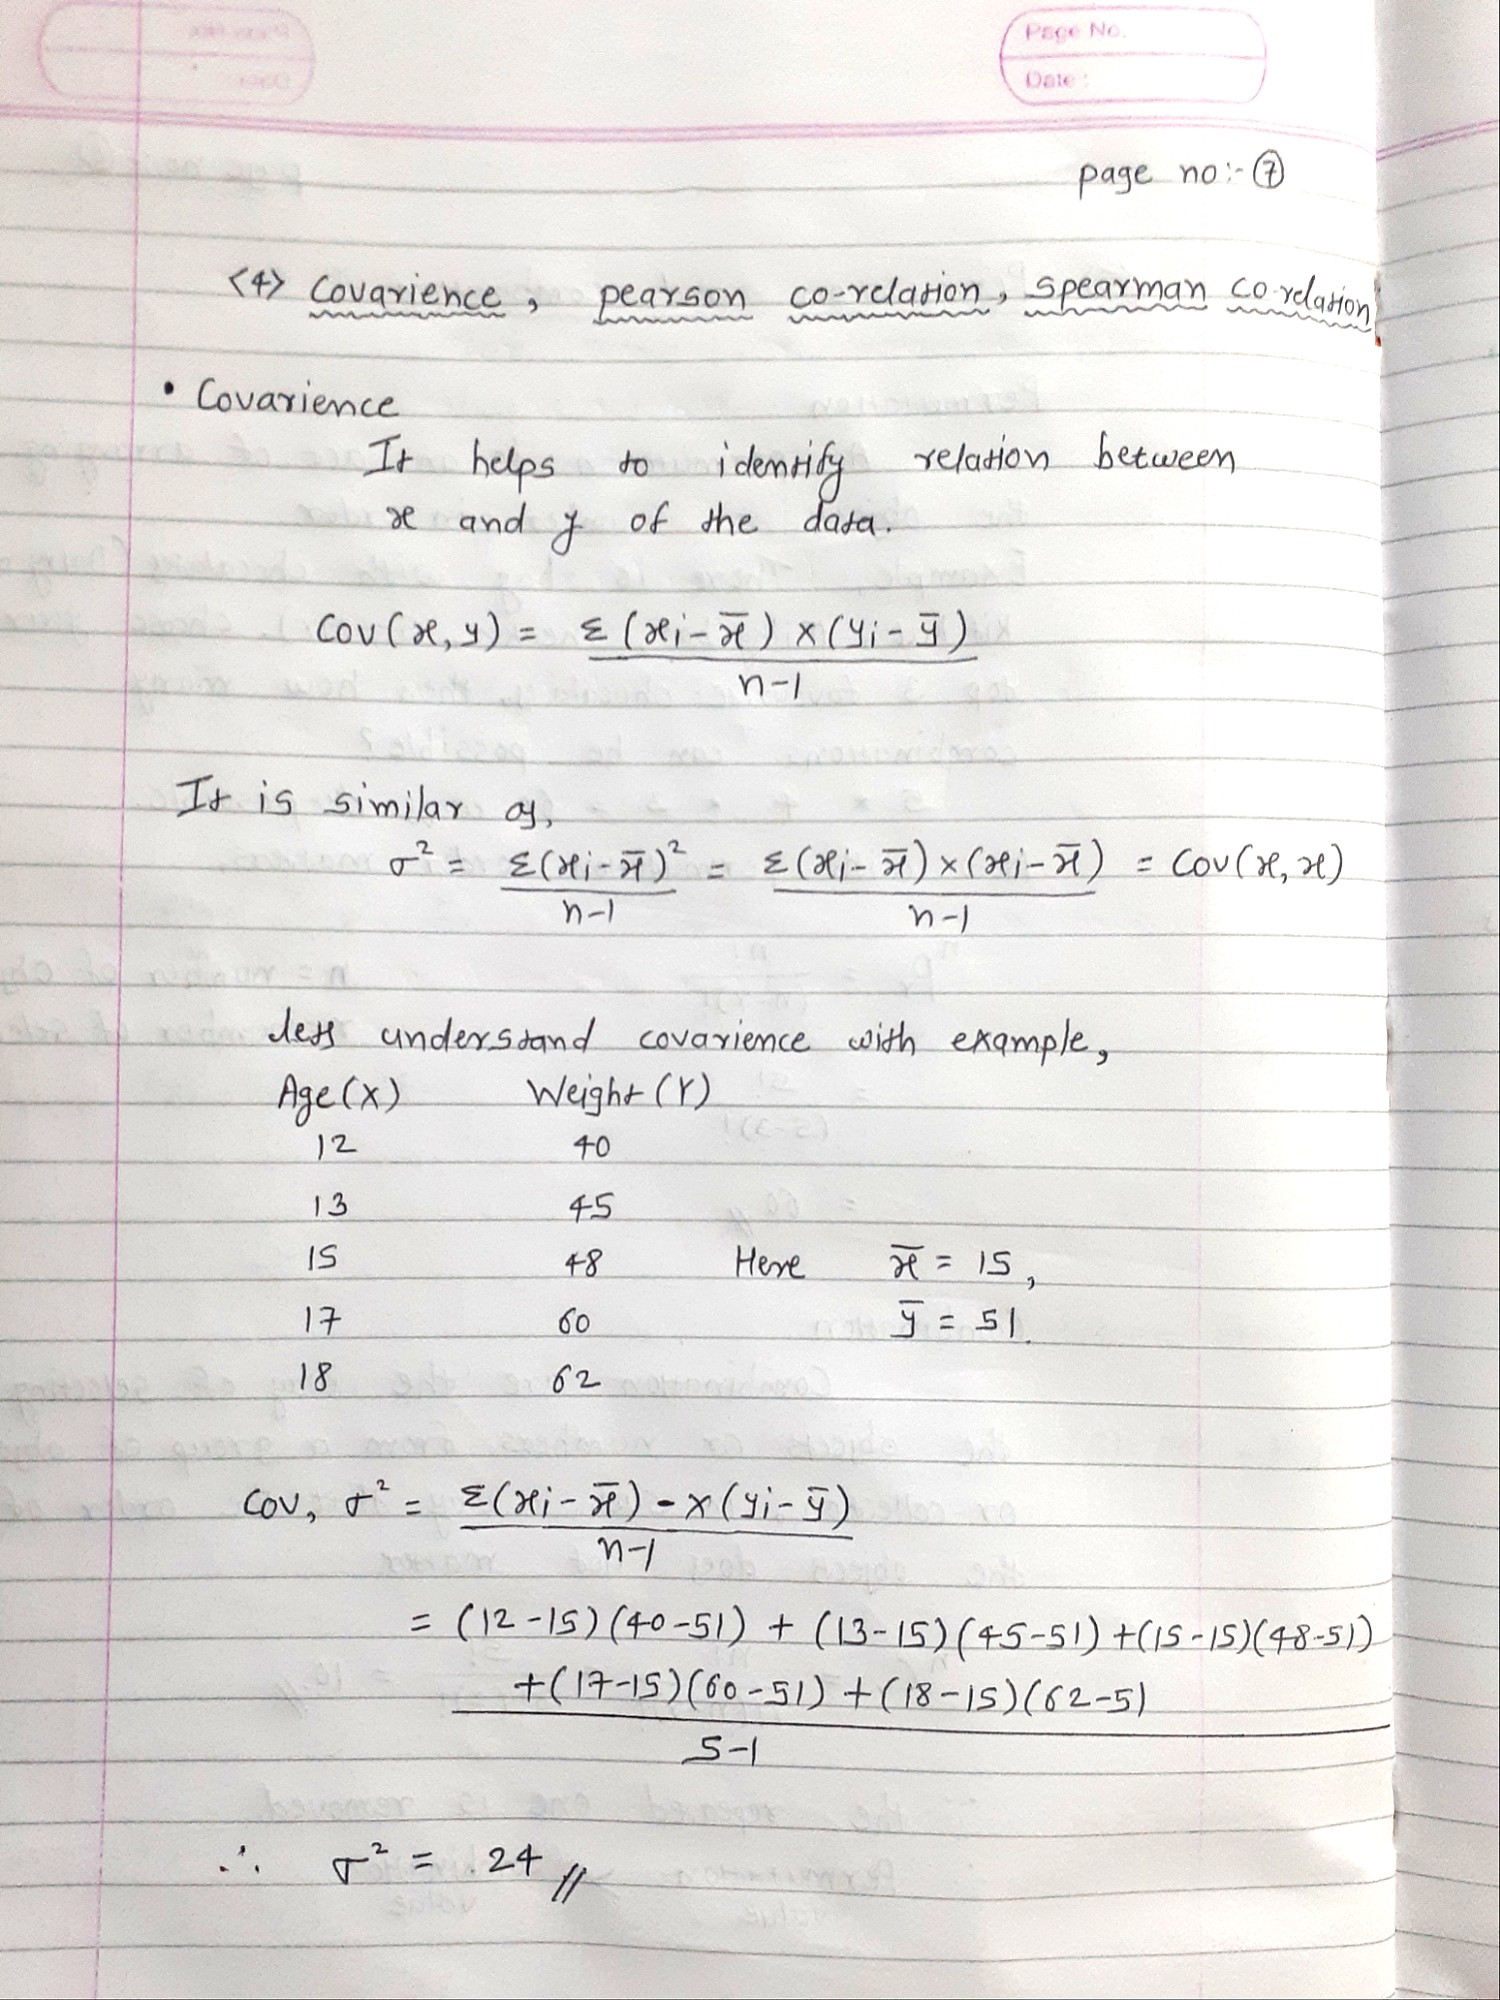 Page No.
Date :
page no:- ⑦
<4> Covarience, pearson co-relation, spearman co-relation
• Covarience
It helps to identify relation between
x and y of the data.
Cov(x, y) = Σ (xi - x̄) × (yi - ȳ)
n-1
It is similar as,
σ² = Σ(xi - x̄)² = Σ(xi - x̄) × (xi - x̄) = Cov(x, x)
n-1 n-1
lets understand covarience with example,
Age(X) Weight(Y)
12 40
13 45
15 48 Here x̄ = 15,
17 60 ȳ = 51.
18 62
Cov, σ² = Σ(xi - x̄) - × (yi - ȳ)
n-1
= (12-15)(40-51) + (13-15)(45-51) + (15-15)(48-51)
+ (17-15)(60-51) + (18-15)(62-51
5-1
∴ σ² = 24 //